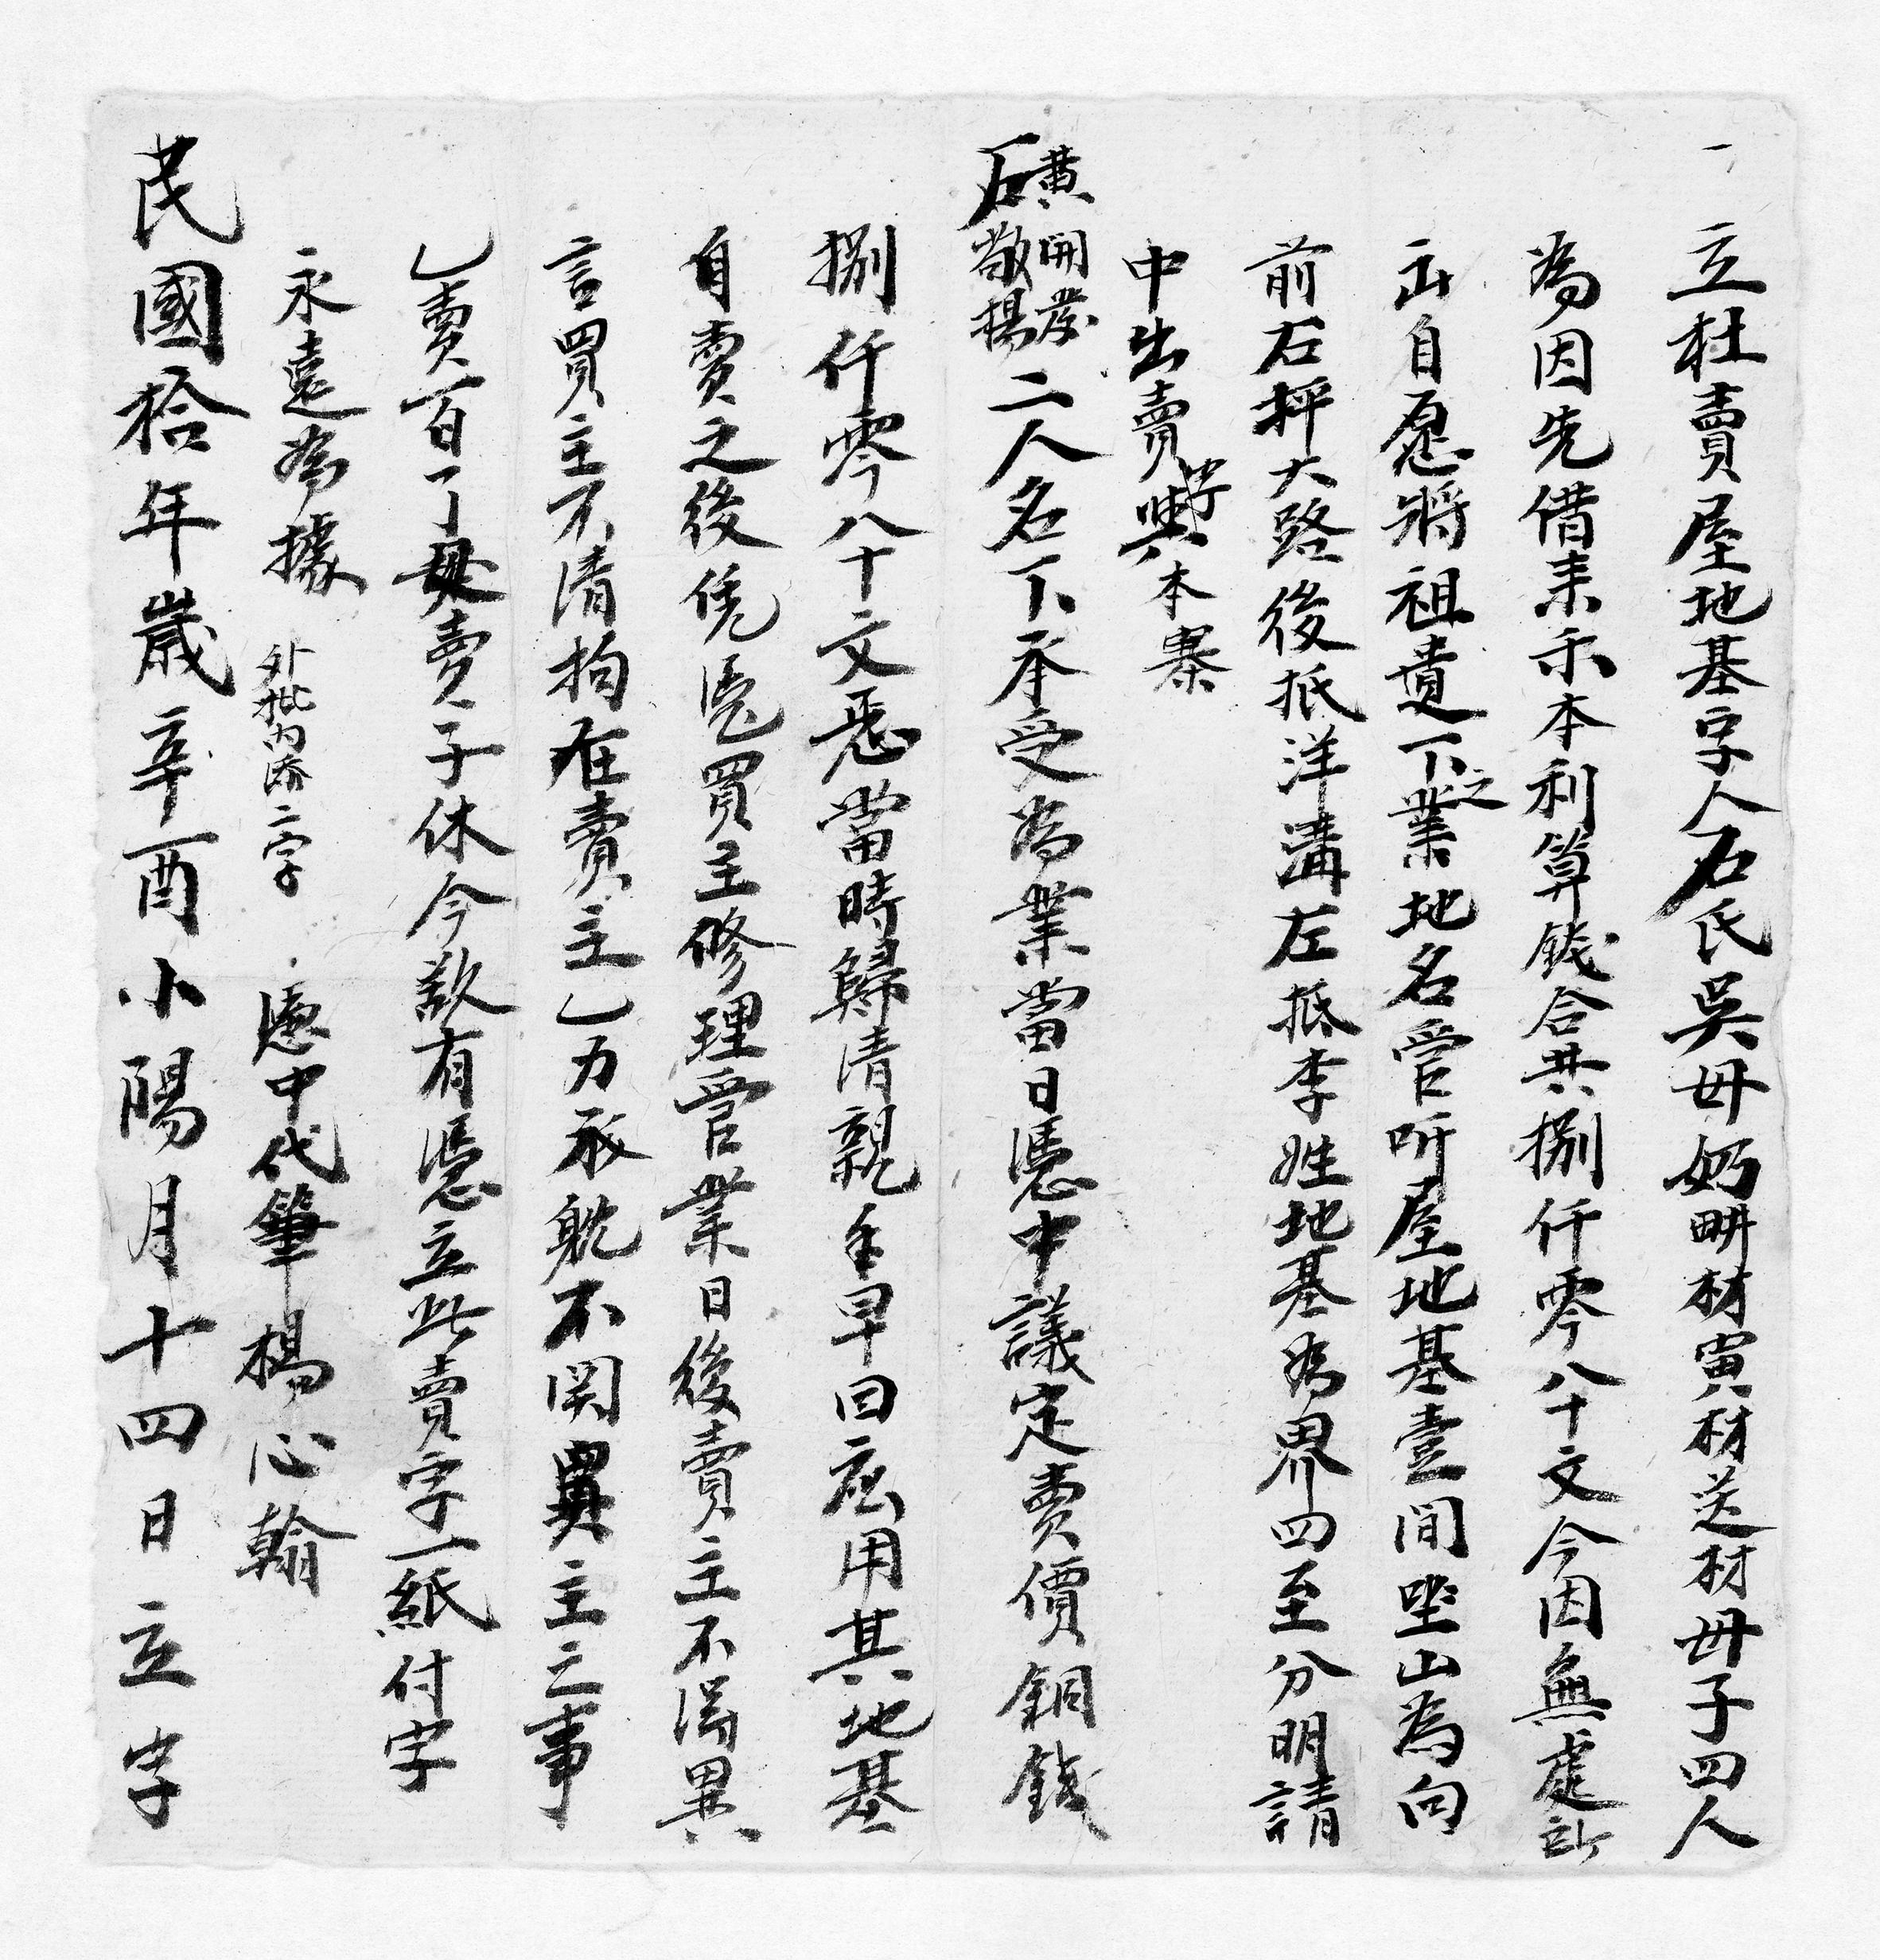 一立杜賣屋地基字人石氏吳毋奶畊材寅材送材毋子四人
為因先借耒禾本利算錢合共捌仟零八十文今因無處所
出自愿將祖遺下之業地名管听屋地基壹間坐山為向
前石坪大路後抵洋溝左抵李姓地基為界四至分明請
中出賣與本寨
黄開發
石敬揚二人名下承受為業當日憑中議定賣價銅錢
捌仟零八十文恁當時歸清親手早回應用其地基
自賣之後凭憑買主修理管業日後賣主不得異
言買主不清拘在賣主乙力承躭不関買主之事
乙賣百了毋賣子休今欲有憑立此賣字一紙付字
永遠為據 外批内添二字 憑中代筆楊心翰
民國拾年歲辛酉小陽月十四日立字